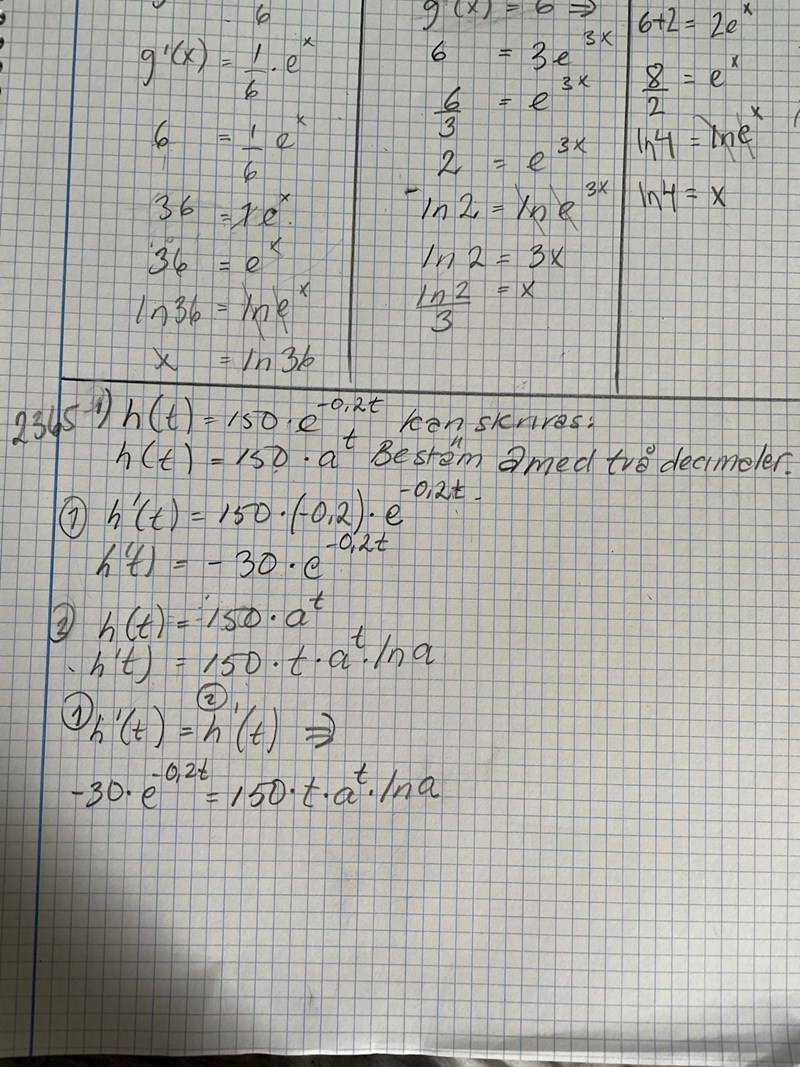 6
g'(x) = 1/6 · e^x
6 = 1/6 e^x
36 = 1e^x
36 = e^x
ln36 = lne^x
x = ln36
g'(x) = 6 ⇒
6 = 3e^3x
6/3 = e^3x
2 = e^3x
ln2 = ln e^3x
ln2 = 3x
ln2/3 = x
6+2 = 2e^x
8/2 = e^x
ln4 = lne^x
ln4 = x
2365 1) h(t) = 150·e^-0,2t kan skrivas:
h(t) = 150 · a^t Bestäm a med två decimaler.
① h'(t) = 150·(-0,2)·e^-0,2t
h'(t) = -30·e^-0,2t
② h(t) = 150·a^t
h'(t) = 150·t·a^t·ln a
① h'(t) = ② h'(t) ⇒
-30·e^-0,2t = 150·t·a^t·ln a